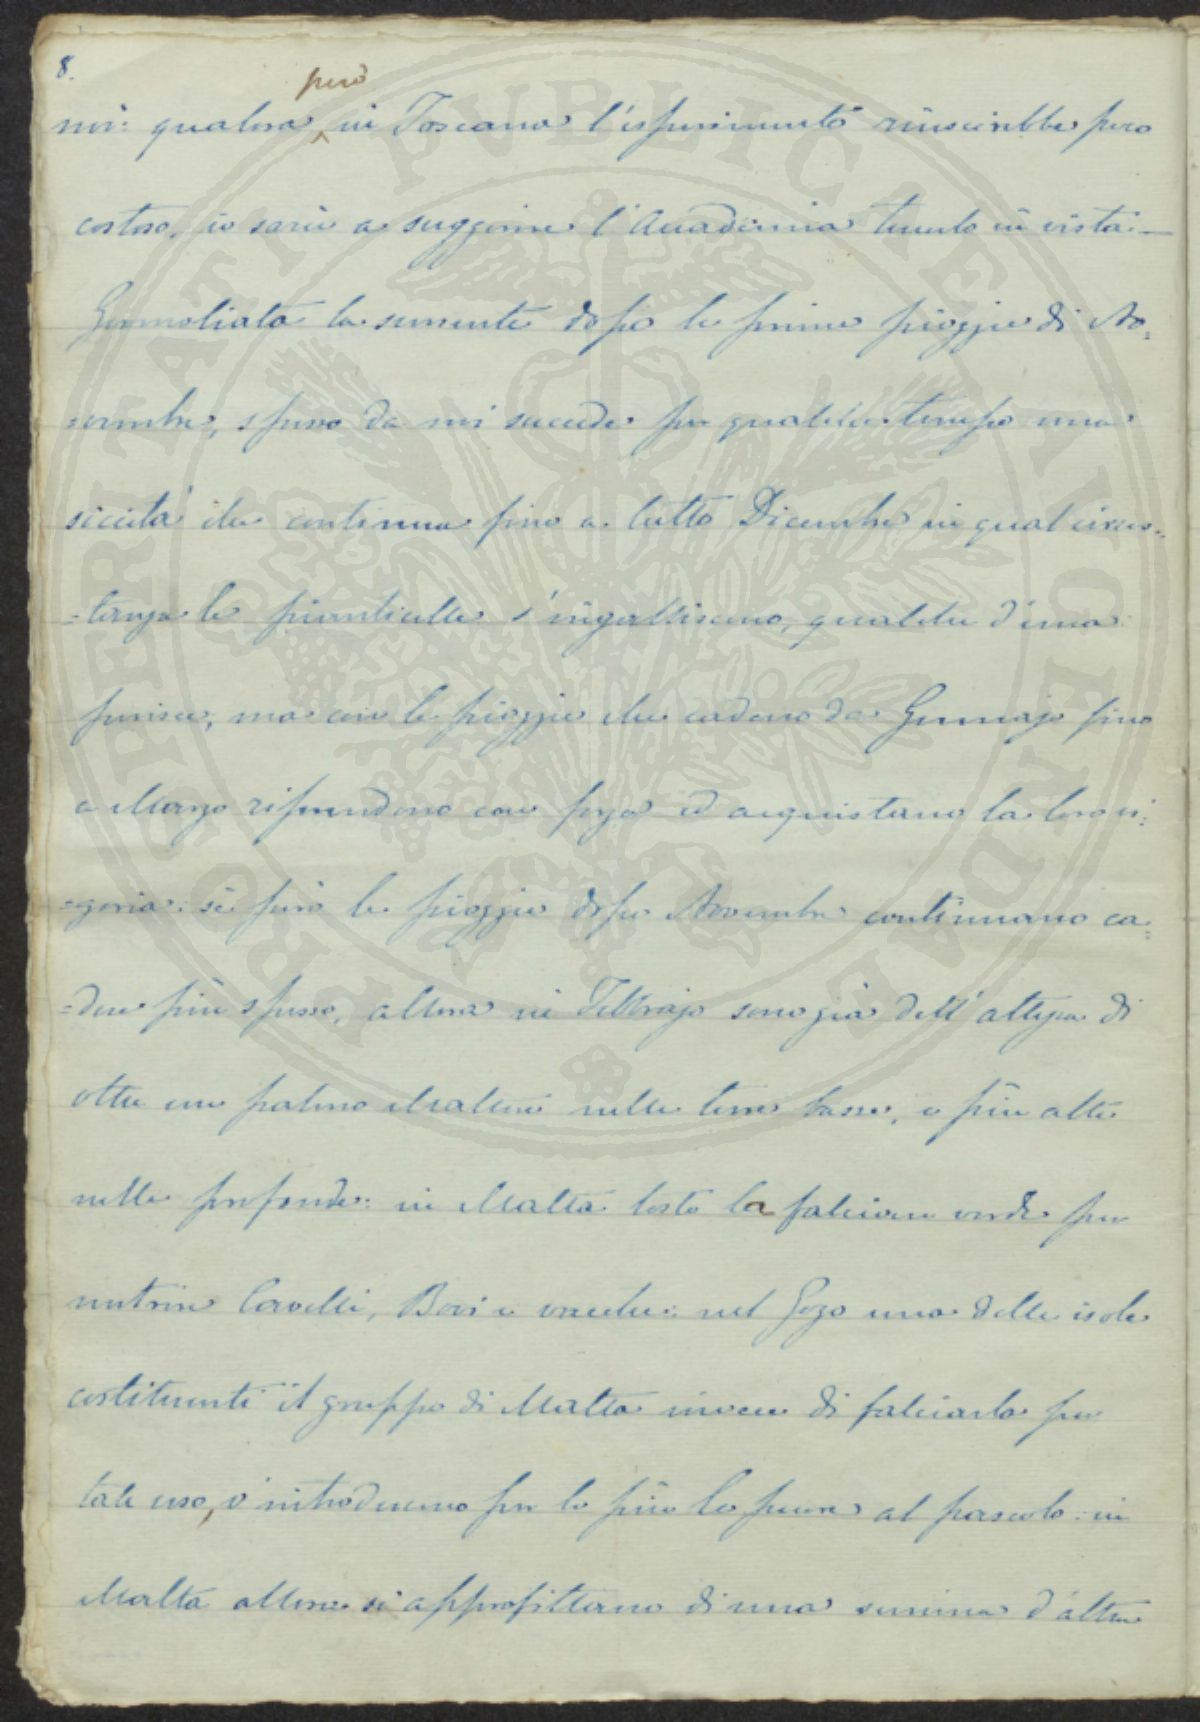 8.
però
noi: qualora in Toscana l'esperimento riuscirebbe poco
costoso, io sarei a suggerire l'Accademia tenerlo in vista.—
Germoliata la semente dopo le prime pioggie di No=
=vembre, spesso da noi succede per qualche tempo una
siccità che continua fino a tutto Dicembre in qual circos=
=tanza le pianticelle s'ingialliscono, qualche d'una
perisce, ma con le pioggie che cadono da Gennajo fino
a Marzo riprendono con forza ed acquistano la loro vi=
=goria: se però le pioggie dopo Novembre continuano ca=
=dere più spesso, allora in Febbrajo sono già dell'altezza di
oltre un palmo Maltese nelle terre basse, e più alte
nelle profonde: in Malta tosto la falciano verde per
nutrire Cavalli, Bovi e vacche: nel Gozo una delle isole
costituenti il gruppo di Malta invece di falciarla per
tale uso, v'introducono per lo più le pecore al pascolo: in
Malta allora si approfittano di una semina d'altra
PROSPERITATI PUBLICAE AUGENDAE